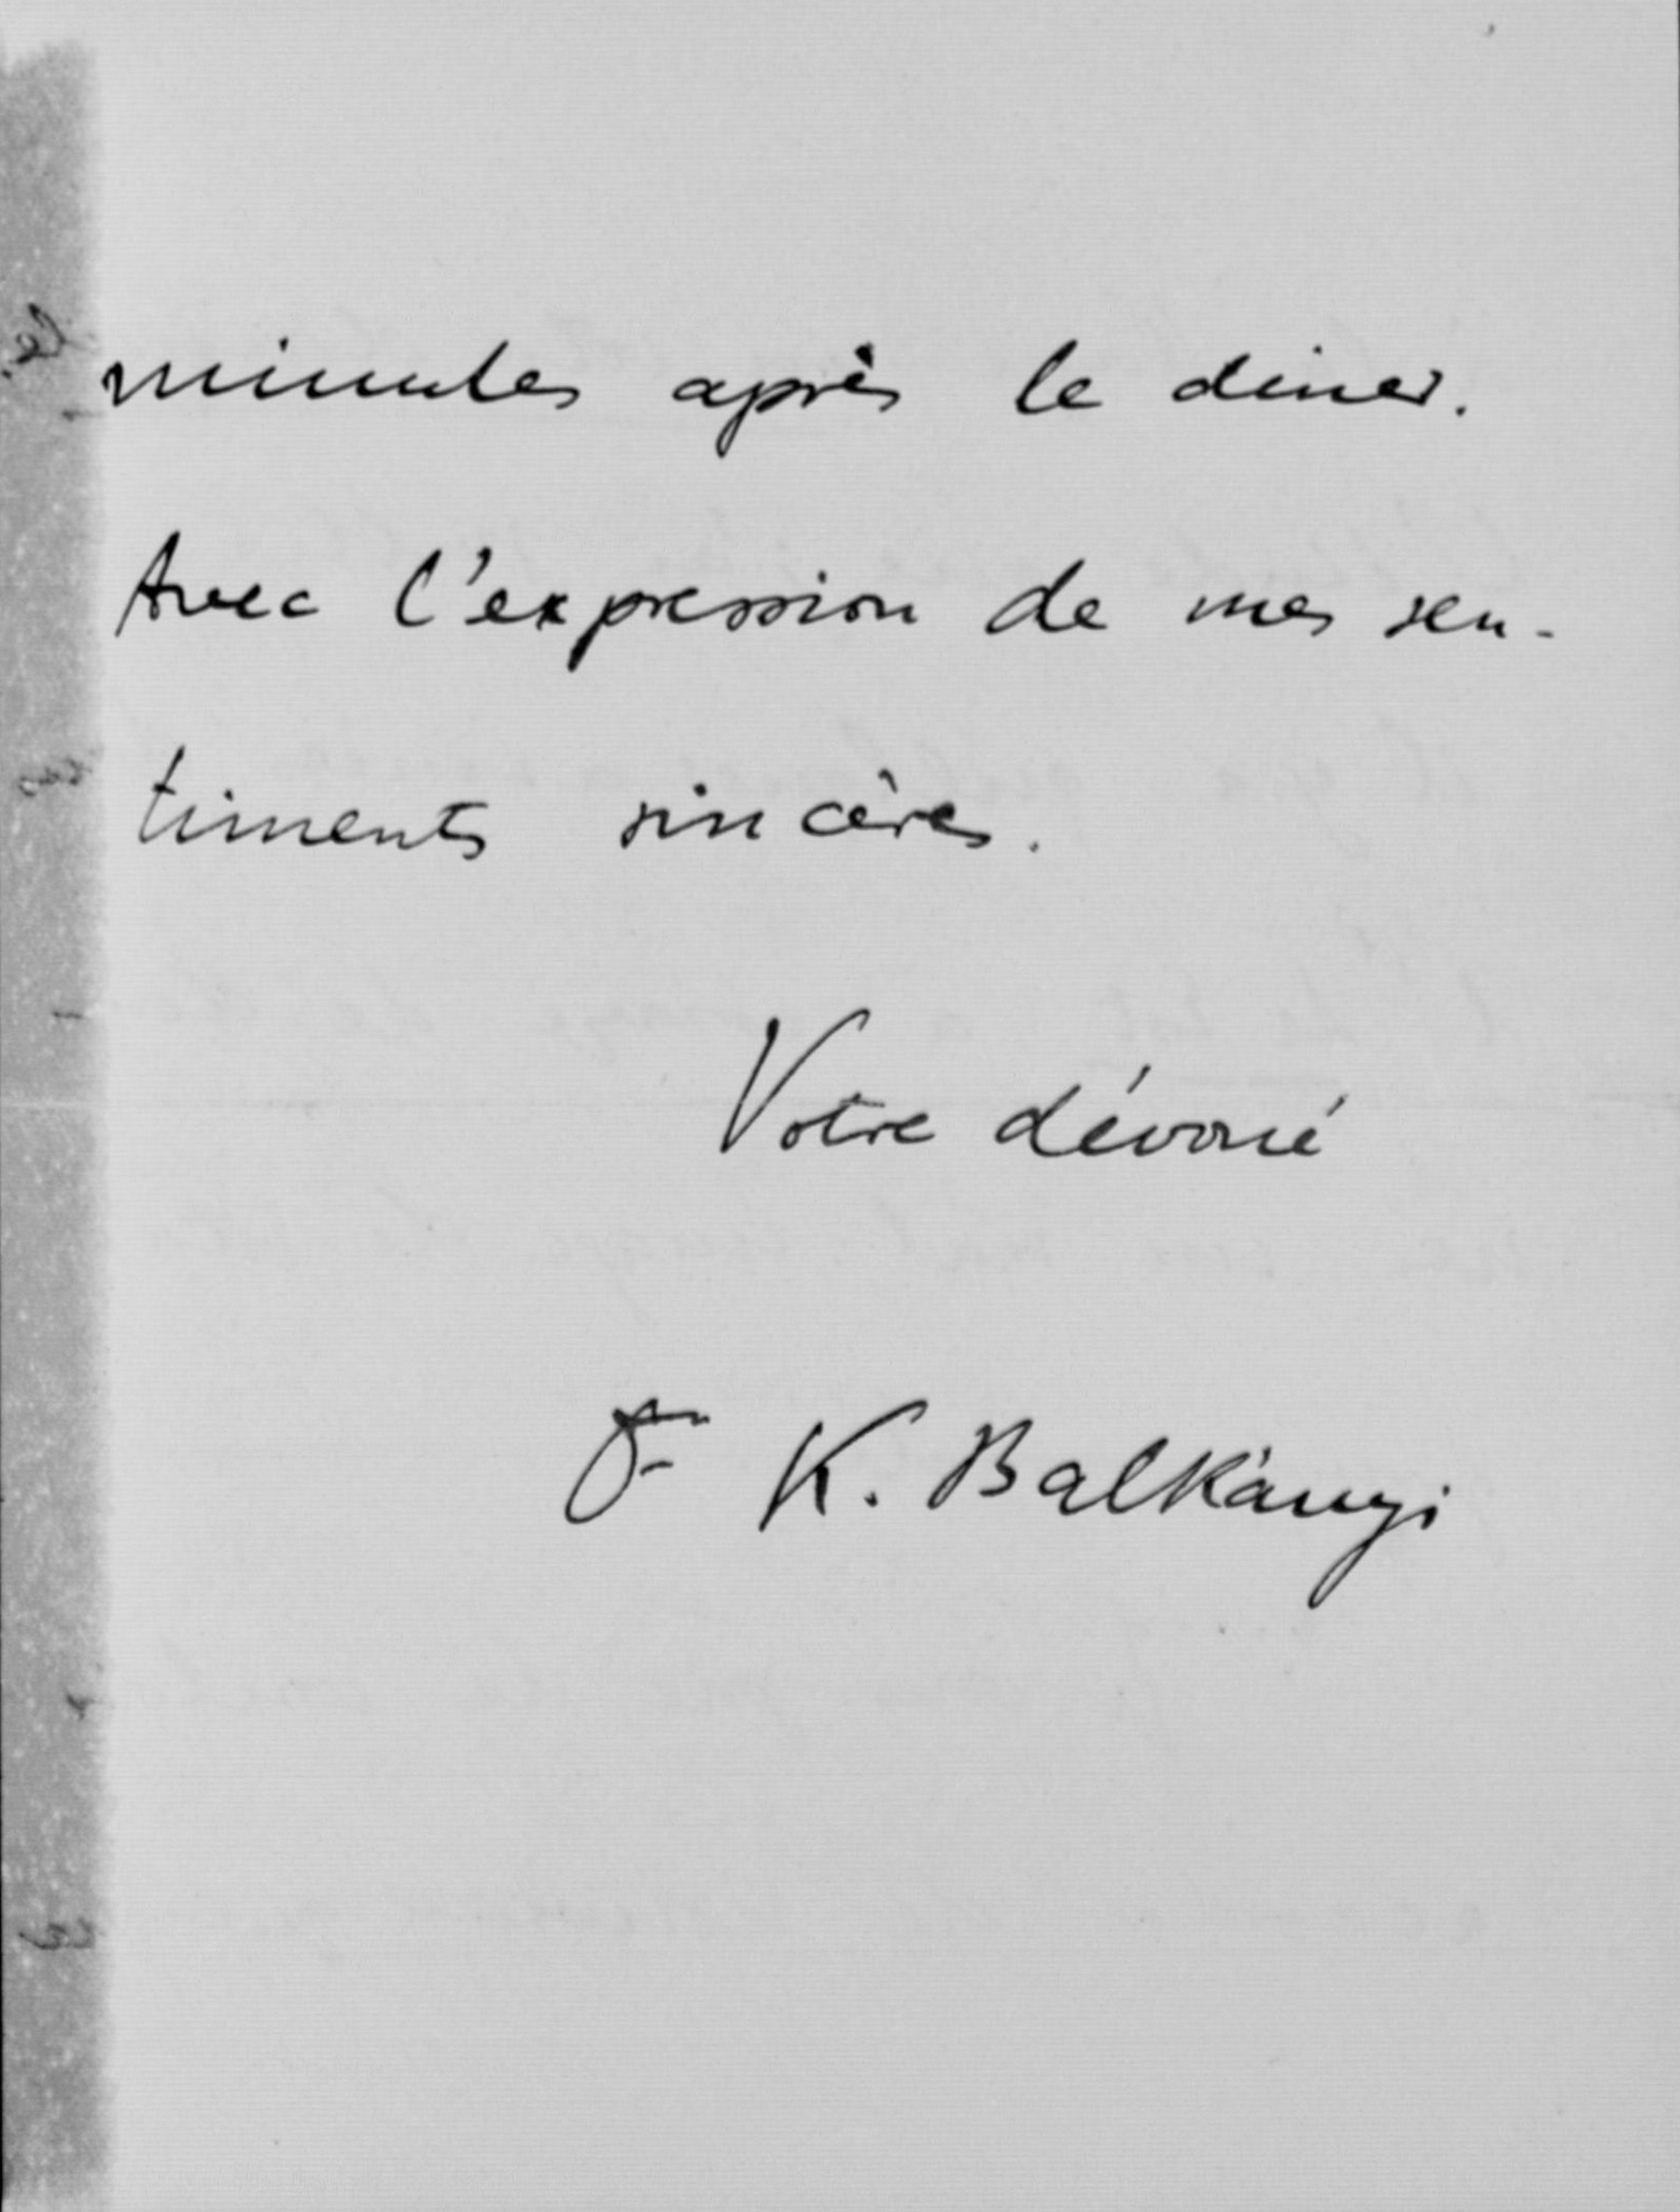 minutes après le diner.
Avec l'expression de mes sen-
timents sincères.
Votre dévoué
Dr K. Balkányi